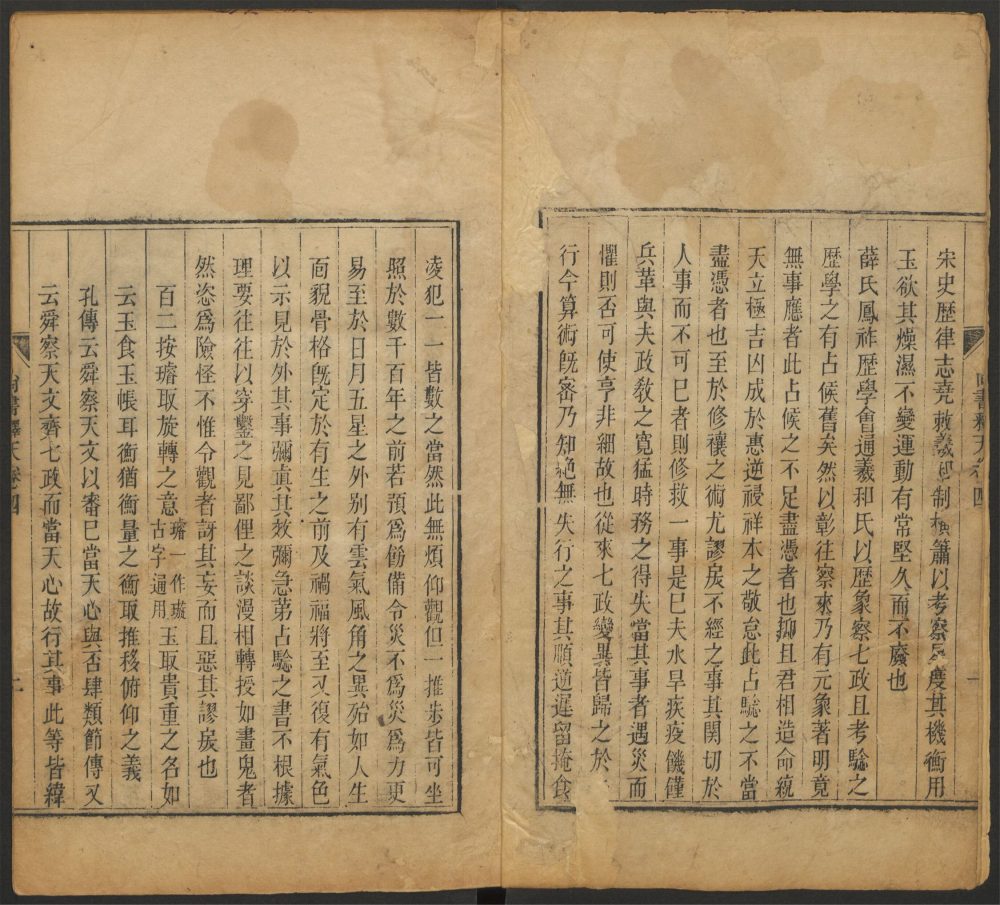 尚書釋天卷四
一
宋史歷律志堯敕羲和制橫簫以考察星度其機衡用
玉欲其燥濕不變運動有常堅久而不廢也
薛氏鳳祚歷學會通羲和氏以歷象察七政且考驗之
歷學之有占候舊矣然以彰往察來乃有元象著明竟
無事應者此占候之不足盡憑者也抑且君相造命統
天立極吉凶成於惠逆祲祥本之敬怠此占驗之不當
盡憑者也至於修禳之術尤謬戾不經之事其関切於
人事而不可已者則修救一事是巳夫水旱疾疫饑僅
兵革與夫政敎之寬猛時務之得失當其事者遇災而
懼則否可使亨非細故也從來七政變異皆歸之於
行今算術旣密乃知絶無失行之事其順逆遲留掩食
凌犯一一皆數之當然此無煩仰觀但一推步皆可坐
照於數千百年之前若預爲飭備令災不爲災爲力更
易至於日月五星之外别有雲氣風角之異殆如人生
面貌骨格旣定於有生之前及禍福將至又復有氣色
以示見於外其事彌眞其效彌急苐占驗之書不根據
理要往往以穿鑿之見鄙俚之談漫相轉授如畫鬼者
然恣爲險怪不惟令觀者訝其妄而且惡其謬戾也
百二按璿取旋轉之意璿一作璇古字通用玉取貴重之名如
云玉食玉帳耳衡猶衡量之衡取推移俯仰之義
孔傳云舜察天文以審巳當天心與否肆類節傳又
云舜察天文齊七政而當天心故行其事此等皆緯
尚書釋天卷四
二